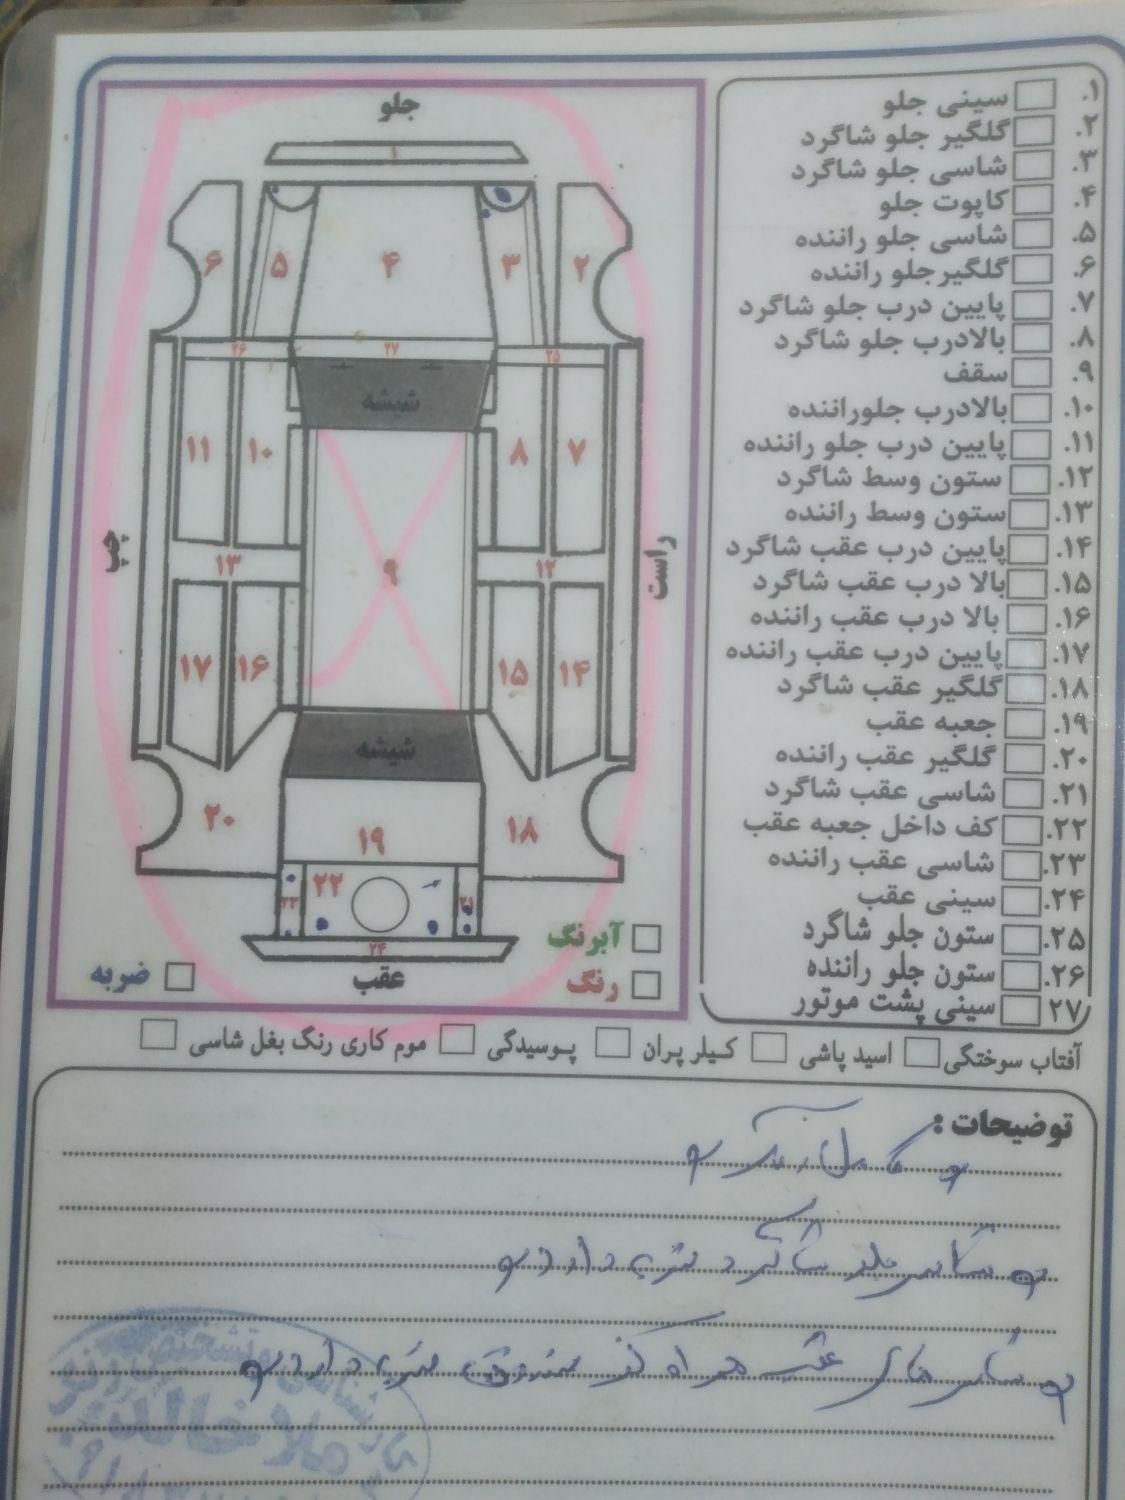 جلو
۱
۶ ۵ ۴ ۳ ۲
۲۶ ۲۷ ۲۵
شیشه
۱۱ ۱۰ ۸ ۷
چپ
راست
۱۳ ۹ ۱۲
۱۷ ۱۶ ۱۵ ۱۴
شیشه
۲۰ ۱۹ ۱۸
۲۳ ۲۲ ۲۱
۲۴
عقب
آبرنگ
رنگ
ضربه
۱. سینی جلو
۲. گلگیر جلو شاگرد
۳. شاسی جلو شاگرد
۴. کاپوت جلو
۵. شاسی جلو راننده
۶. گلگیرجلو راننده
۷. پایین درب جلو شاگرد
۸. بالادرب جلو شاگرد
۹. سقف
۱۰. بالادرب جلوراننده
۱۱. پایین درب جلو راننده
۱۲. ستون وسط شاگرد
۱۳. ستون وسط راننده
۱۴. پایین درب عقب شاگرد
۱۵. بالا درب عقب شاگرد
۱۶. بالا درب عقب راننده
۱۷. پایین درب عقب راننده
۱۸. گلگیر عقب شاگرد
۱۹. جعبه عقب
۲۰. گلگیر عقب راننده
۲۱. شاسی عقب شاگرد
۲۲. کف داخل جعبه عقب
۲۳. شاسی عقب راننده
۲۴. سینی عقب
۲۵. ستون جلو شاگرد
۲۶. ستون جلو راننده
۲۷ سینی پشت موتور
آفتاب سوختگی اسید پاشی کیلر پران پوسیدگی موم کاری رنگ بغل شاسی
توضیحات :
کامل رنگ
شاسی جلو شاگرد ضربه دارد
شاسی های عقب همراه کف صندوق ضربه دارد